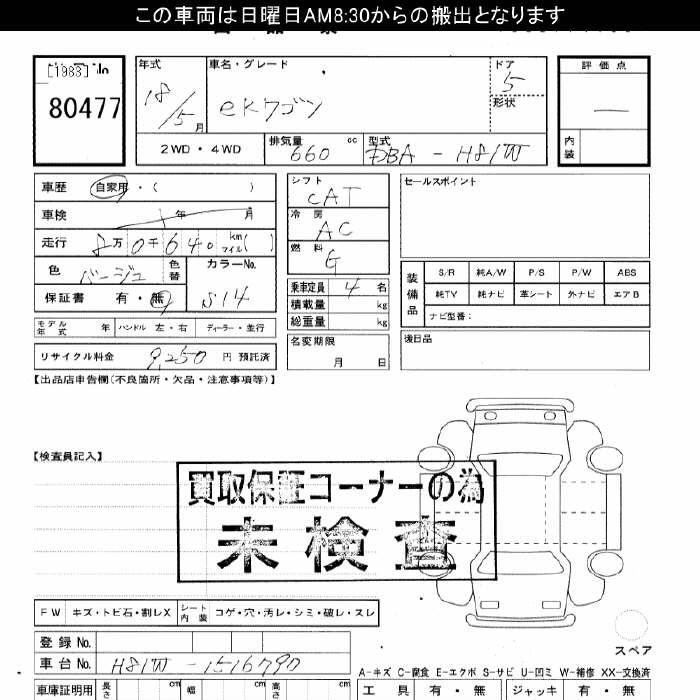 この車両は日曜日AM8:30からの搬出となります
[1983] No
80477
年式
車名・グレード
ドア
評価点
18/5月
eKワゴン
5
形状
2WD・4WD
排気量
cc
型式
内装
660
DBA - H81W
車歴
自家用・( )
シフト
CAT
セールスポイント
車検
年 月
冷房
AC
走行
8万0千640 km マイル( )
燃料
G
色
ベージュ
色替
カラーNo.
S14
保証書 有・無
乗車定員 4名
積載量 kg
総重量 kg
装備品
S/R 純A/W P/S P/W ABS
純TV 純ナビ 革シート 外ナビ エアB
ナビ型番:
モデル年式 年 ハンドル 左・右 ディーラー・並行
名変期限
月 日
後日品
リサイクル料金 9,250 円 預託済
【出品店申告欄(不良箇所・欠品・注意事項等)】
【検査員記入】
買取保証コーナーの為
未検査
FW キズ・トビ石・割レX シート内装 コゲ・穴・汚レ・シミ・破レ・スレ
スペア
登録No.
車台No. H81W - 1516790
A-キズ C-腐食 E-エクボ S-サビ U-凹ミ W-補修 XX-交換済
車庫証明用 長さ cm 幅 cm 高さ cm
工具 有・無 ジャッキ 有・無